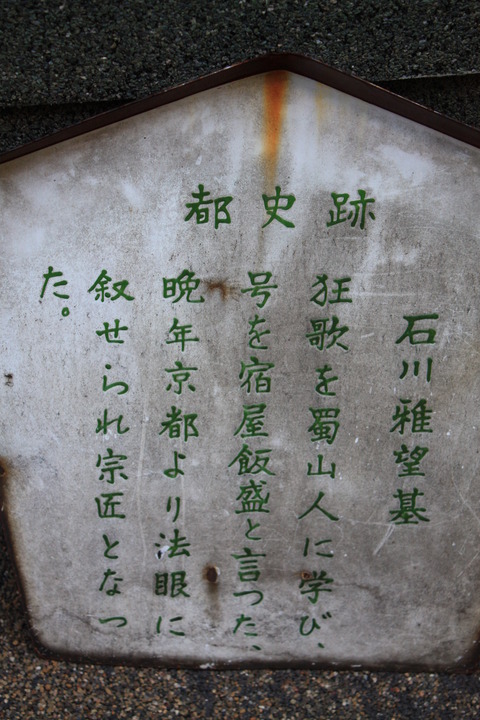 都史跡
石川雅望基
狂歌を蜀山人に学び、
号を宿屋飯盛と言つた、
晩年京都より法眼に
叙せられ宗匠となつ
た。